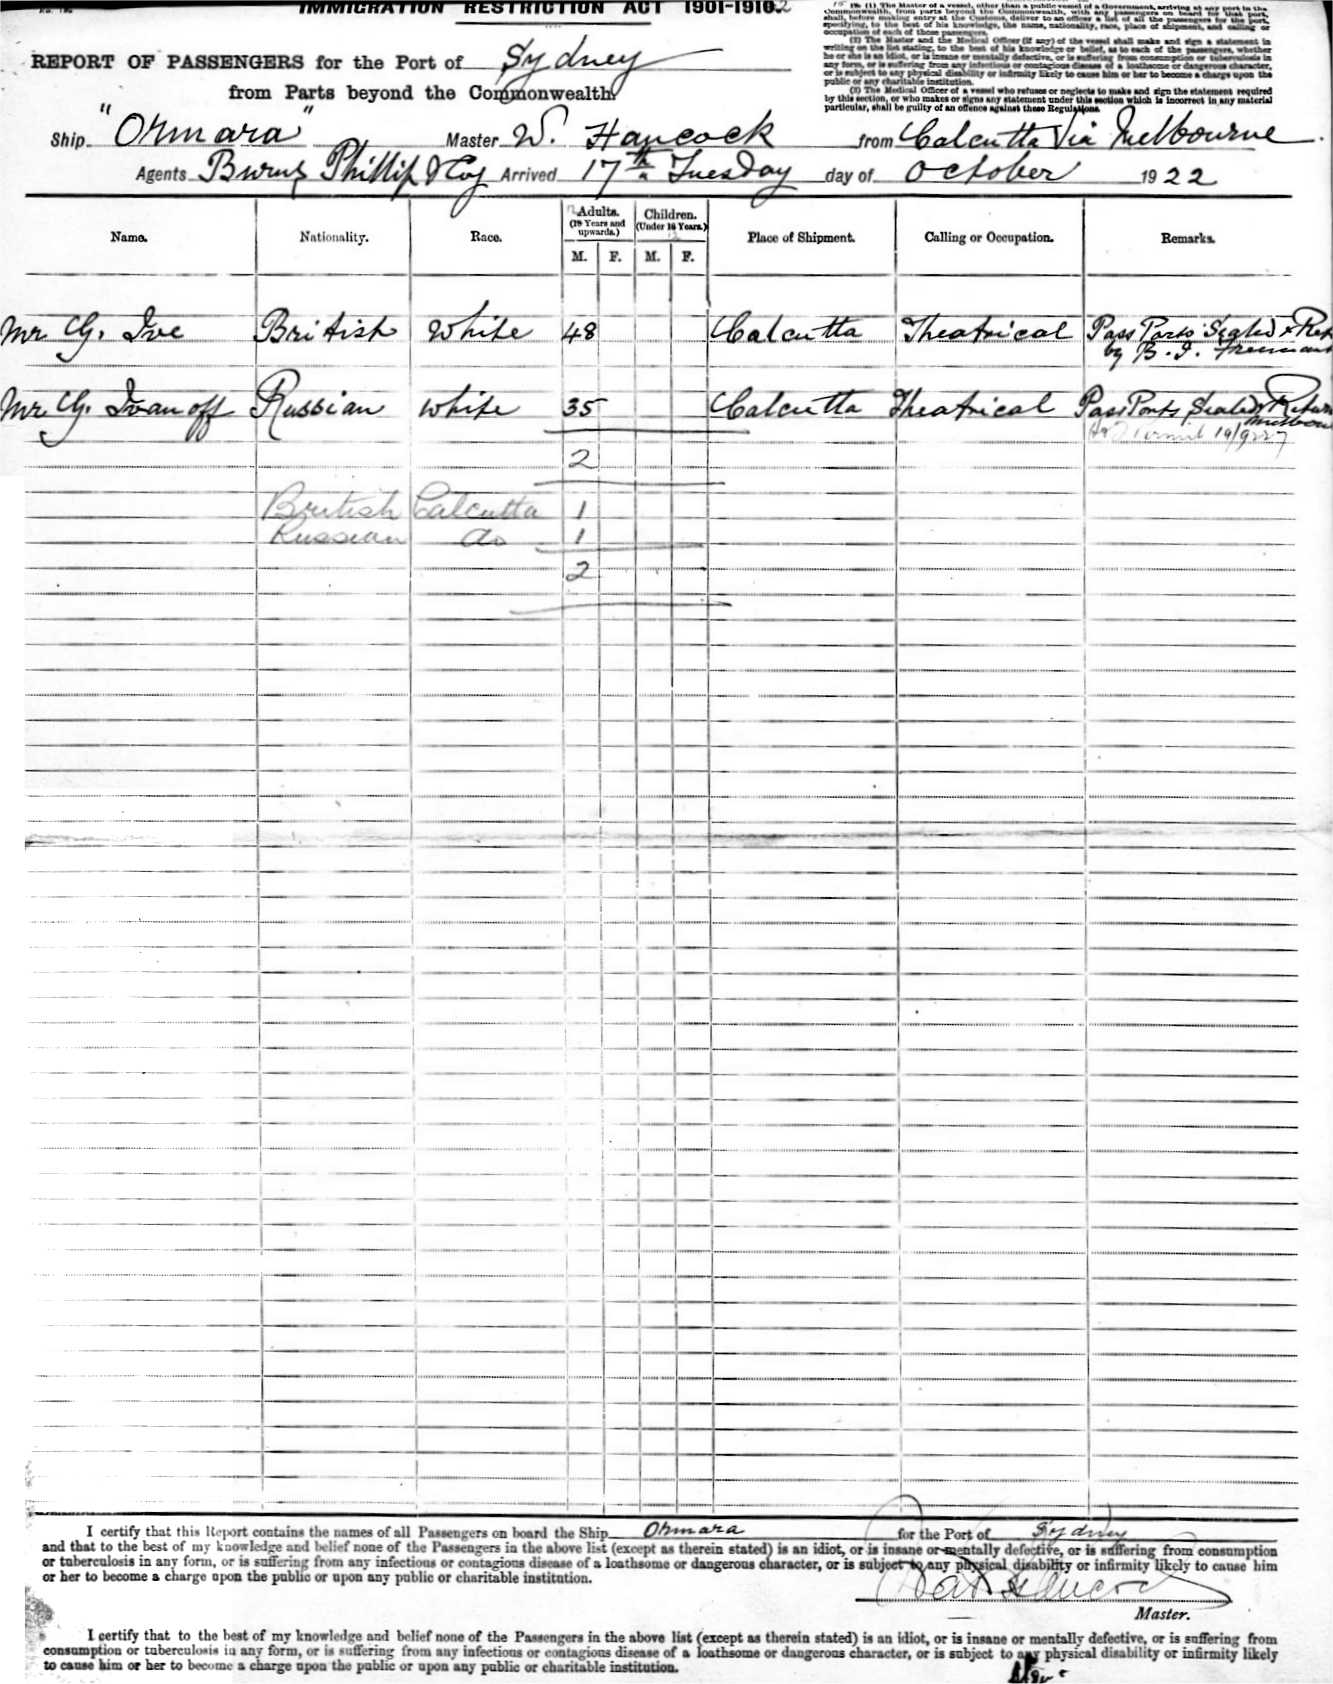 IMMIGRATION RESTRICTION ACT 1901-1910 2
19. (1) The Master of a vessel, other than a public vessel of a Government, arriving at any port in the
Commonwealth, from parts beyond the Commonwealth, with any passengers on board for that port,
shall, before making entry at the Customs, deliver to an officer a list of all the passengers for the port,
specifying, to the best of his knowledge, the name, nationality, race, place of shipment, and calling or
occupation of each of those passengers.
(2) The Master and the Medical Officer (if any) of the vessel shall make and sign a statement in
writing on the list stating, to the best of his knowledge or belief, as to each of the passengers, whether
he or she is an idiot, or is insane or mentally defective, or is suffering from consumption or tuberculosis in
any form, or is suffering from any infectious or contagious disease of a loathsome or dangerous character,
or is subject to any physical disability or infirmity likely to cause him or her to become a charge upon the
public or any charitable institution.
(3) The Medical Officer of a vessel who refuses or neglects to make and sign the statement required
by this section, or who makes or signs any statement under this section which is incorrect in any material
particular, shall be guilty of an offence against these Regulations.
REPORT OF PASSENGERS for the Port of Sydney
from Parts beyond the Commonwealth
Ship "Ormara" Master W. Hancock from Calcutta Via Melbourne
Agents Burns Phillip & Coy Arrived 17th Tuesday day of October 1922
Name. Nationality. Race. Adults. (18 Years and upwards.) Children. (Under 18 Years.) Place of Shipment. Calling or Occupation. Remarks.
M. F. M. F.
Mr G. Ive British White 48 Calcutta Theatrical Pass Ports Sealed & Ret
by B. I. Freeman
Mr G. Ivanoff Russian White 35 Calcutta Theatrical Pass Ports Sealed & Return
Melbour
Permit 19/9227
2
British Calcutta 1
Russian do 1
2
I certify that this Report contains the names of all Passengers on board the Ship Ormara for the Port of Sydney
and that to the best of my knowledge and belief none of the Passengers in the above list (except as therein stated) is an idiot, or is insane or mentally defective, or is suffering from consumption
or tuberculosis in any form, or is suffering from any infectious or contagious disease of a loathsome or dangerous character, or is subject to any physical disability or infirmity likely to cause him
or her to become a charge upon the public or upon any public or charitable institution.
Hancock
Master.
I certify that to the best of my knowledge and belief none of the Passengers in the above list (except as therein stated) is an idiot, or is insane or mentally defective, or is suffering from
consumption or tuberculosis in any form, or is suffering from any infectious or contagious disease of a loathsome or dangerous character, or is subject to any physical disability or infirmity likely
to cause him or her to become a charge upon the public or upon any public or charitable institution.